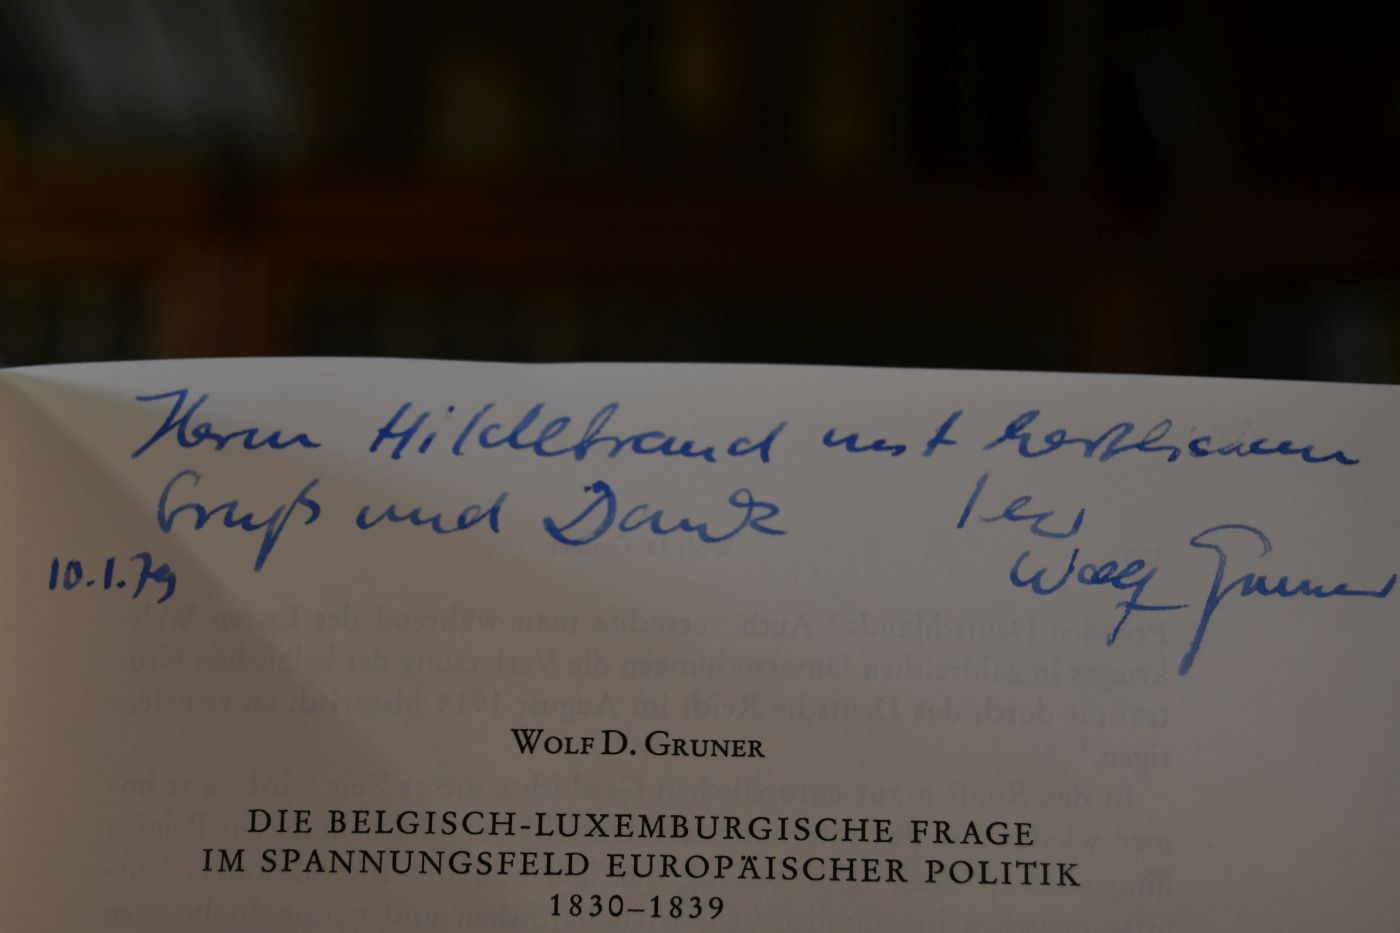 Herrn Hildebrand mit herzlichem
Gruß und Dank Ihr
10.1.79 Wolf Gruner
WOLF D. GRUNER
DIE BELGISCH-LUXEMBURGISCHE FRAGE
IM SPANNUNGSFELD EUROPÄISCHER POLITIK
1830–1839